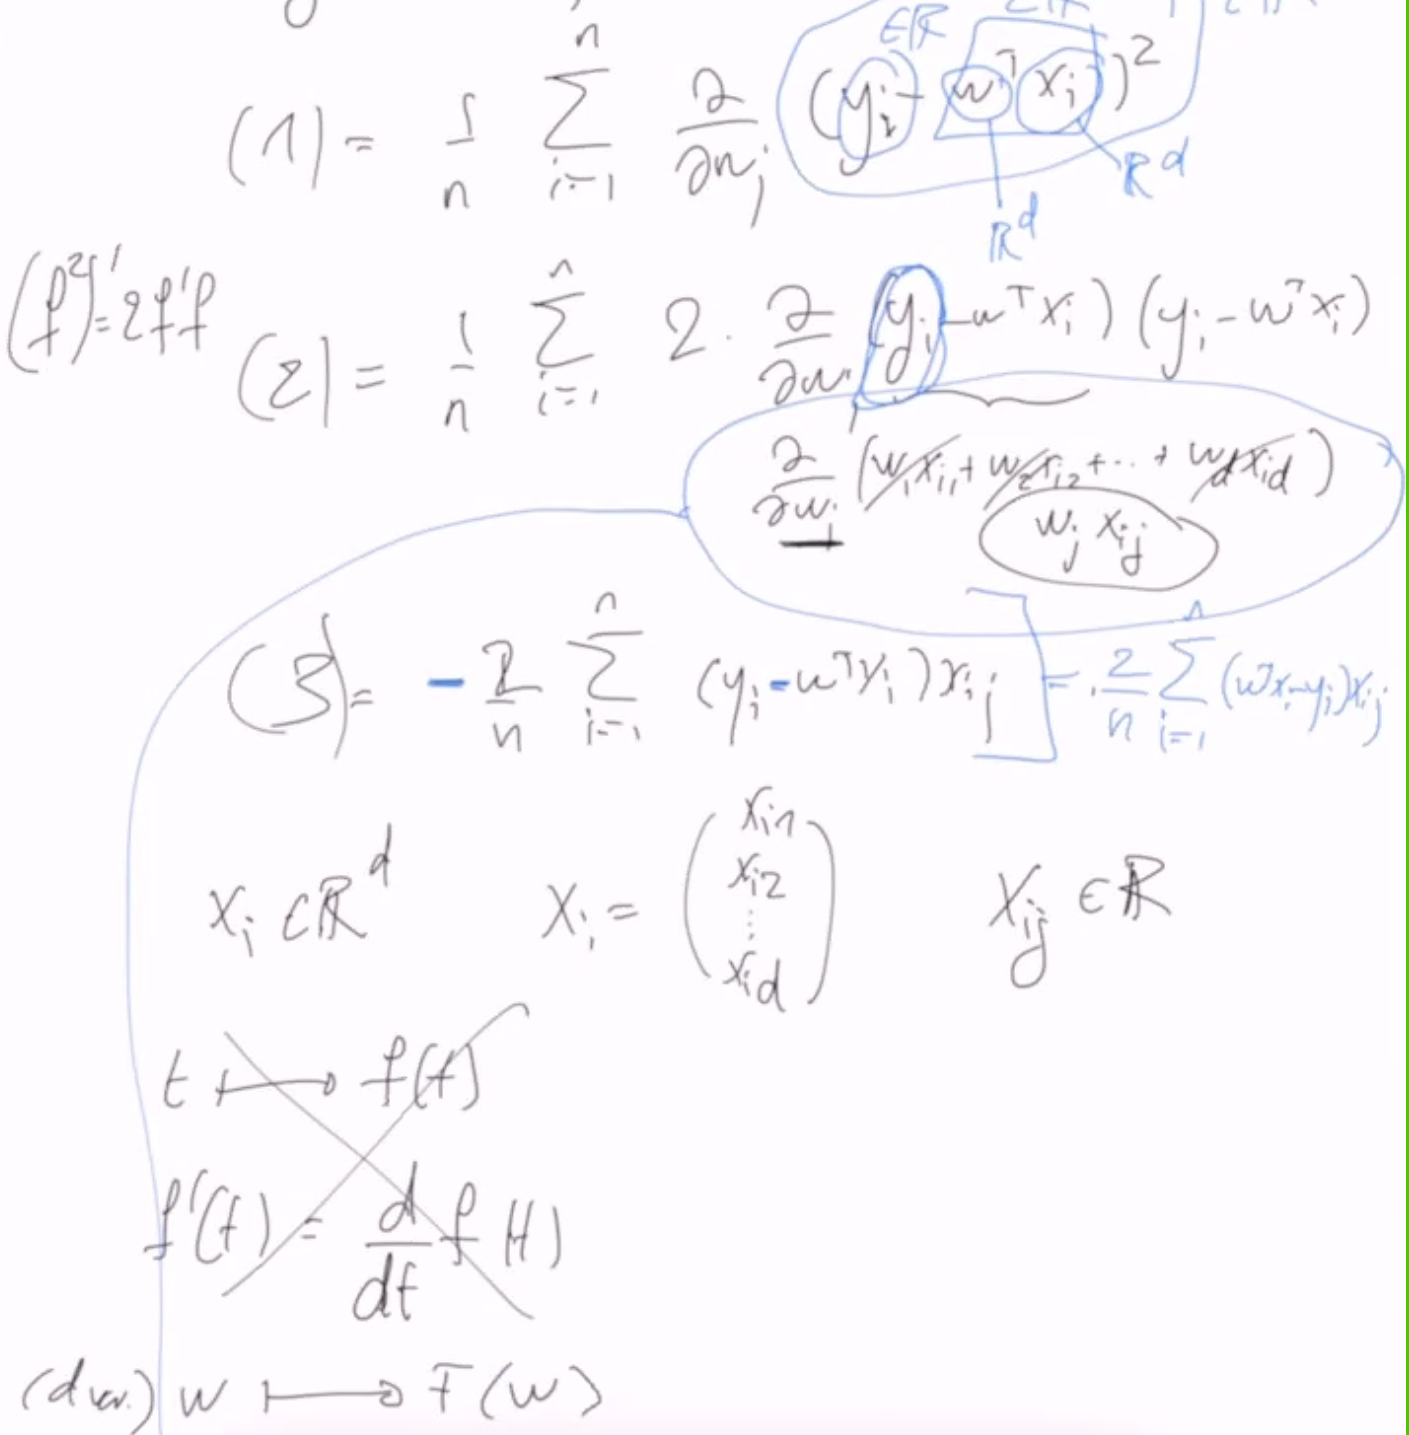 ∈ℝ
(1) = 1/n ∑_{i=1}^{n} ∂/∂w_j (y_i − w^T x_i)^2
ℝ^d ℝ^d
(f^2)' = 2f'f
(2) = 1/n ∑_{i=1}^{n} 2 · ∂/∂w_j (y_i − w^T x_i) (y_i − w^T x_i)
∂/∂w_j (w_1 x_{i1} + w_2 x_{i2} + ... + w_d x_{id})
w_j x_{ij}
(3) = − 2/n ∑_{i=1}^{n} (y_i − w^T x_i) x_{ij} ] = 2/n ∑_{i=1}^{n} (w^T x_i − y_i) x_{ij}
x_i ∈ ℝ^d x_i = (x_{i1} x_{i2} ⋮ x_{id}) x_{ij} ∈ ℝ
t ↦ f(t)
f'(t) = d/dt f(t)
(d var.) w ↦ F(w)